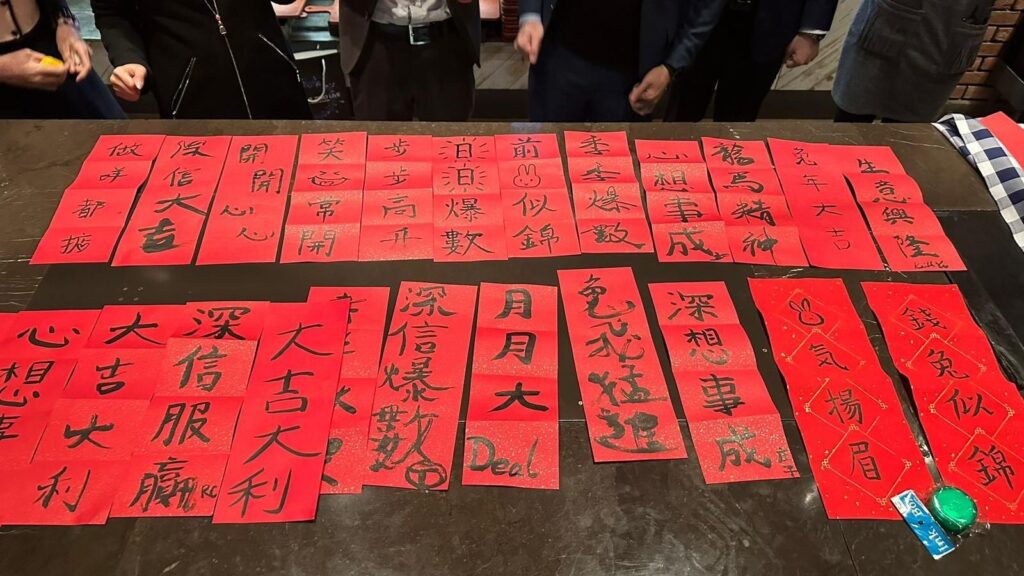 做咩都掂
深信大吉
開開心心
笑常開
步步高升
爆數
前似錦
季季爆數
心想事成
龍馬精神
兔年大吉
生意興隆
心想事
大吉大利
深信服贏RC
大吉大利
深信爆數
月月大Deal
兔飛猛進
深想事成
氣揚眉
錢兔似錦